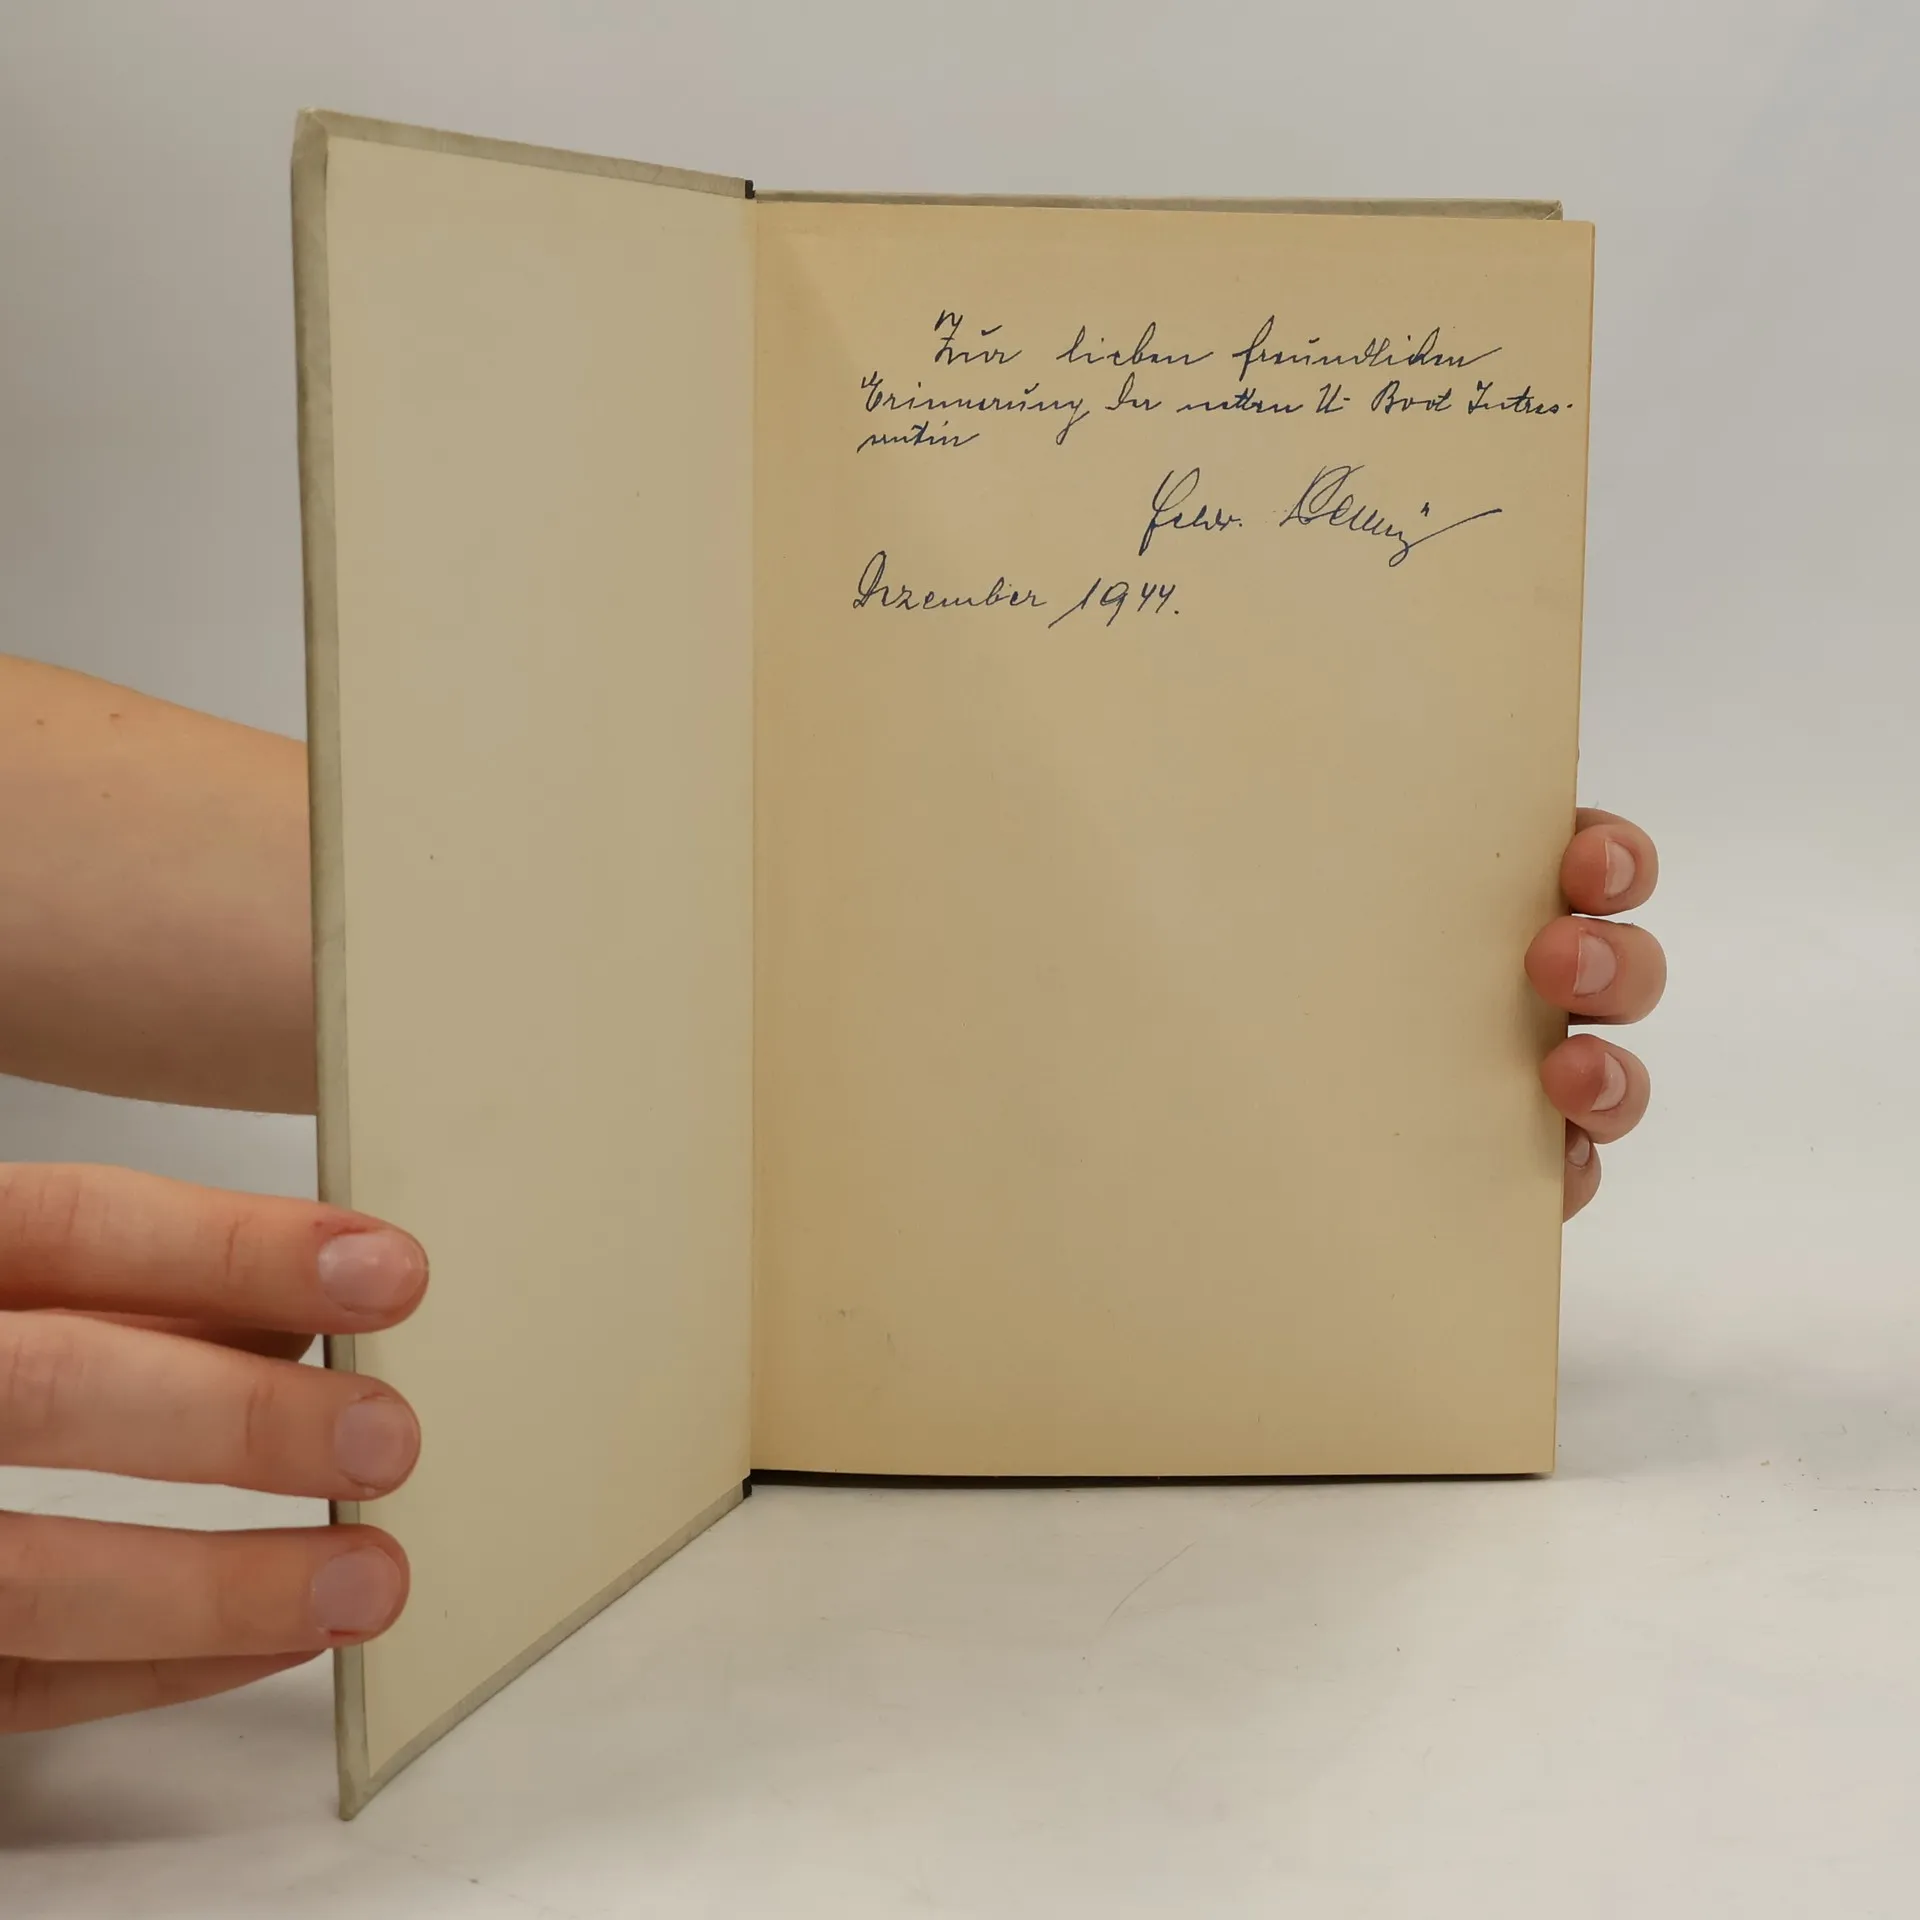 Zur lieben freundlichen
Erinnerung der netten U- Boot Intres-
sentin
Dezember 1944.